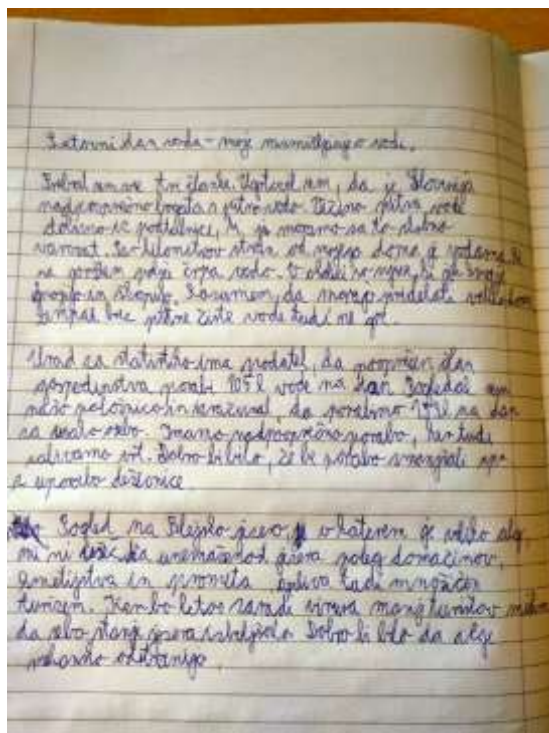 Svetovni dan voda - moje razmišljanje o vodi.
Prebral sem vse tri članke. Ugotovil sem, da je Slovenija
nadpovprečno bogata s pitno vodo. Večino pitne vode
dobimo iz podtalnice, ki jo moramo zato dobro
varovat. Par kilometrov stran od mojega doma je
na prodem polju črpa vodo. V okolici so njive, ki jih
gnojijo in škropijo. Razumem, da morejo pridelati
ampak brez pitne čiste vode tudi ne gre.
Urad za statistiko ima podatek, da povprečen član
gospodinjstva porabi 105 l vode na dan. Pogledal sem
našo položnico in izračunal, da porabimo na dan
za vsako osebo. Imamo nadpovprečno porabo, ker tudi
zalivamo vrt. Dobro bi bilo, če bi porabo zmanjšali
z uporabo deževnice.
Pogled na Blejsko jezero, v katerem je veliko alg,
mi ni všeč. Na onesnaženost jezera poleg domačinov,
kmetijstva in prometa vpliva tudi množičen
turizem. Ker bo letos zaradi virusa manj turistov
da se bo stanje jezera izboljšalo. Dobro bi bilo da alge
odstranijo.